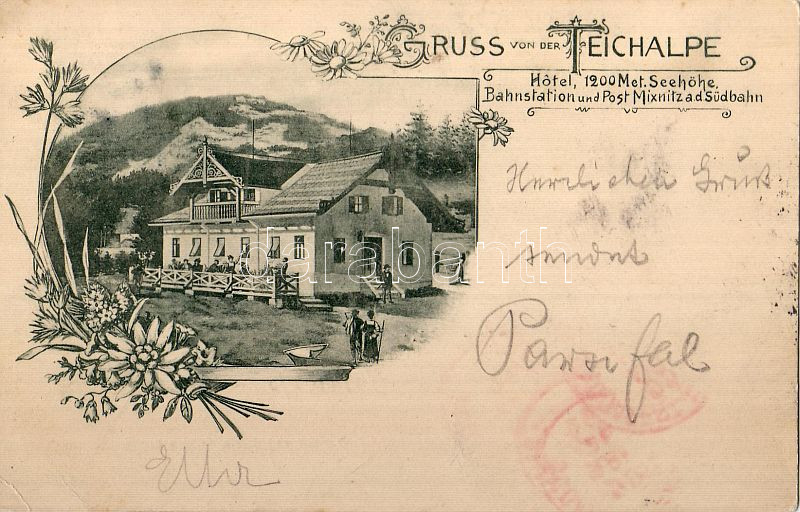 GRUSS VON DER TEICHALPE
Hôtel, 1200 Met. Seehöhe,
Bahnstation und Post Mixnitz a.d. Südbahn
Herzlichen Gruß
sendet
Parsifal
darabanth